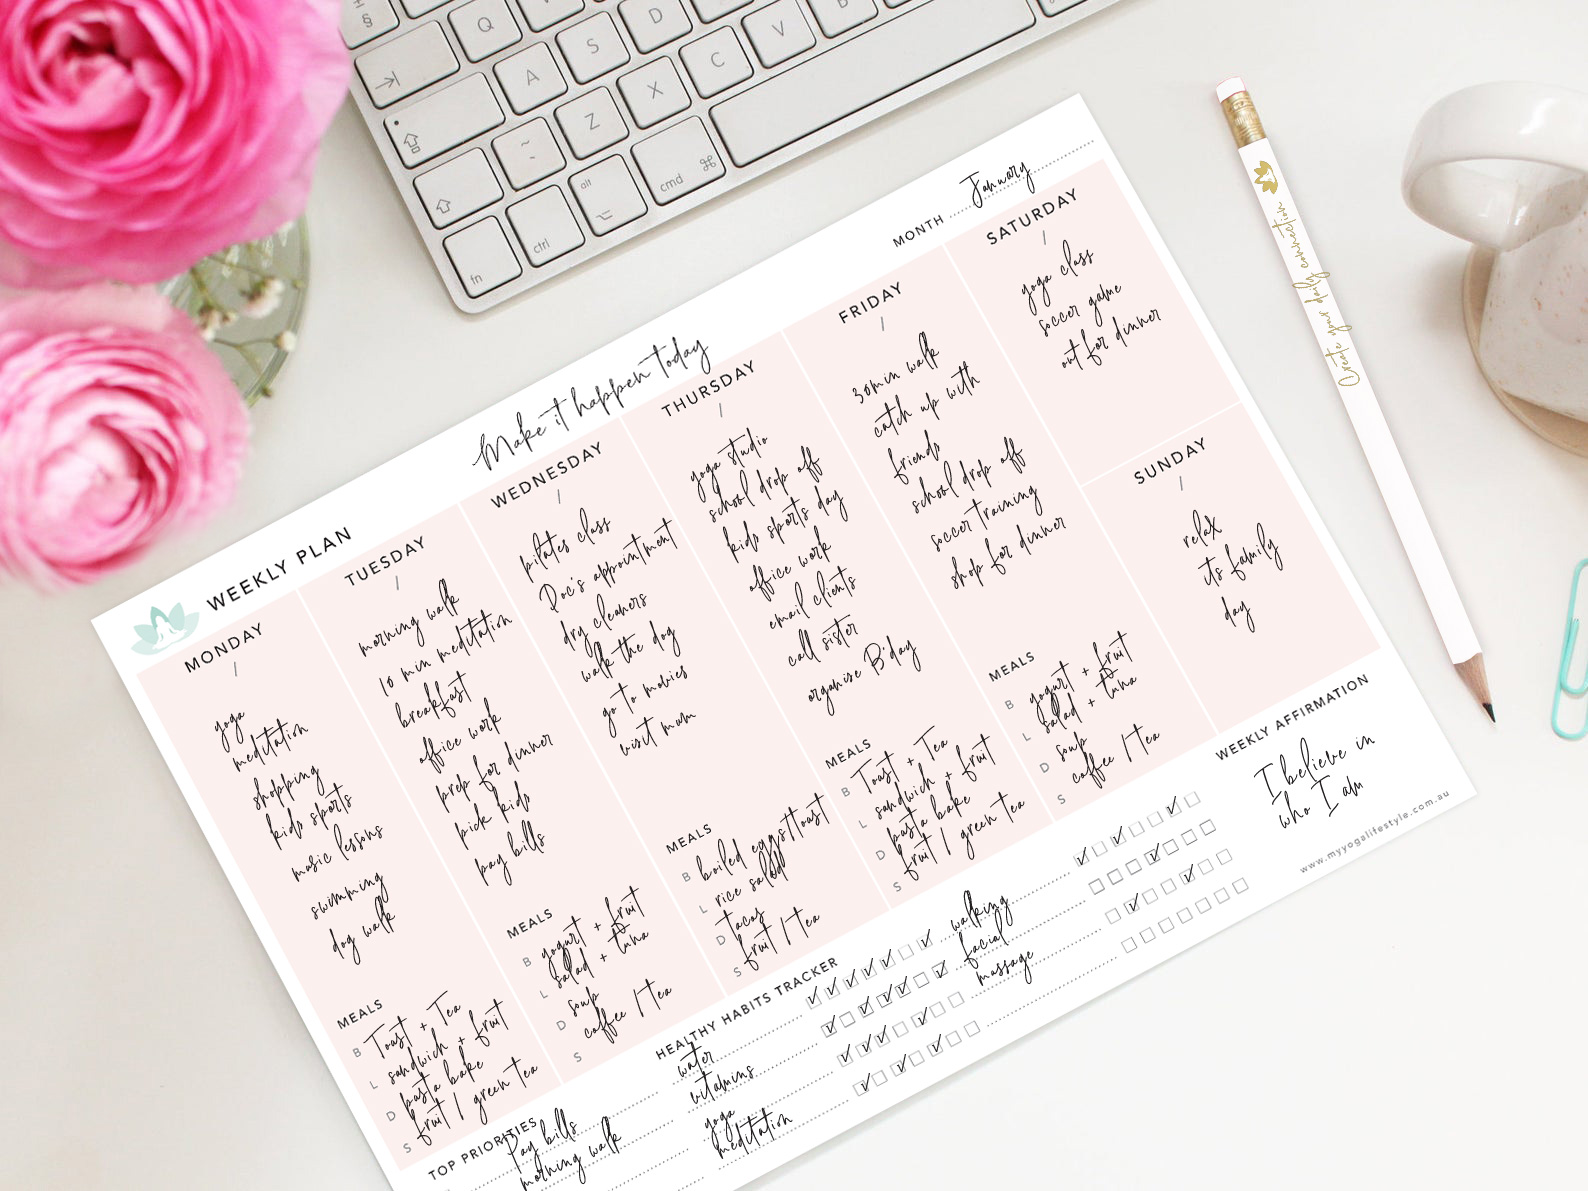 §
Q
D
S
A
V
B
C
X
Z
~
fn
ctrl
alt
cmd
MONTH January
Make it happen today
WEEKLY PLAN
MONDAY
yoga
meditation
shopping
kids sports
music lessons
swimming
dog walk
MEALS
B Toast + Tea
L sandwich + fruit
D pasta bake
S fruit / green tea
TUESDAY
morning walk
10 min meditation
breakfast
office work
prep for dinner
pick kids
pay bills
MEALS
B yogurt + fruit
L salad + tuna
D soup
S coffee / tea
WEDNESDAY
pilates class
Doc's appointment
dry cleaners
walk the dog
go to movies
visit mum
MEALS
B boiled eggs/toast
L rice salad
D tacos
S fruit / tea
THURSDAY
yoga studio
school drop off
kids sports day
office work
email clients
call sister
organise B'day
MEALS
B Toast + Tea
L sandwich + fruit
D pasta bake
S fruit / green tea
FRIDAY
30min walk
catch up with
friends
school drop off
soccer training
shop for dinner
MEALS
B yogurt + fruit
L salad + tuna
D soup
S coffee / tea
SATURDAY
yoga class
soccer game
out for dinner
SUNDAY
relax
its family
day
TOP PRIORITIES
Pay bills
morning walk
HEALTHY HABITS TRACKER
water
vitamins
yoga
meditation
walking
facial
massage
WEEKLY AFFIRMATION
I believe in
who I am
www.myyogalifestyle.com.au
Create your daily connection